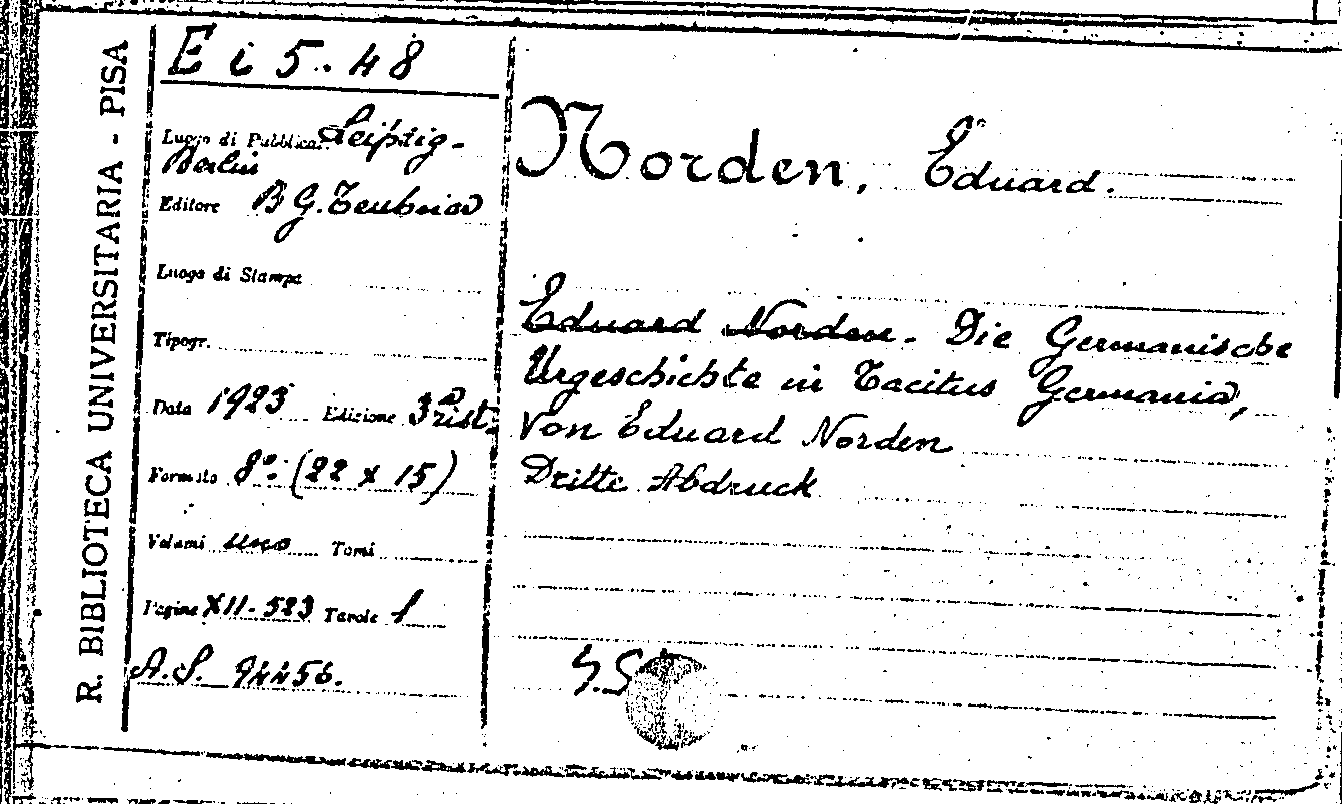 R. BIBLIOTECA UNIVERSITARIA - PISA
E i 5. 48
Luogo di Pubblicaz. Leipzig-
Berlin
Editore B G. Teubner
Luogo di Stampa
Tipogr.
Data 1923 Edizione 3ª rist.
Formato 8º. (22 x 15)
Volumi uno Tomi
Pagine XII-523 Tavole 1
A.S. 94456.
Norden, Eduard.
Eduard Norden. Die Germanische
Urgeschichte in Tacitus Germania,
von Eduard Norden
Dritte Abdruck